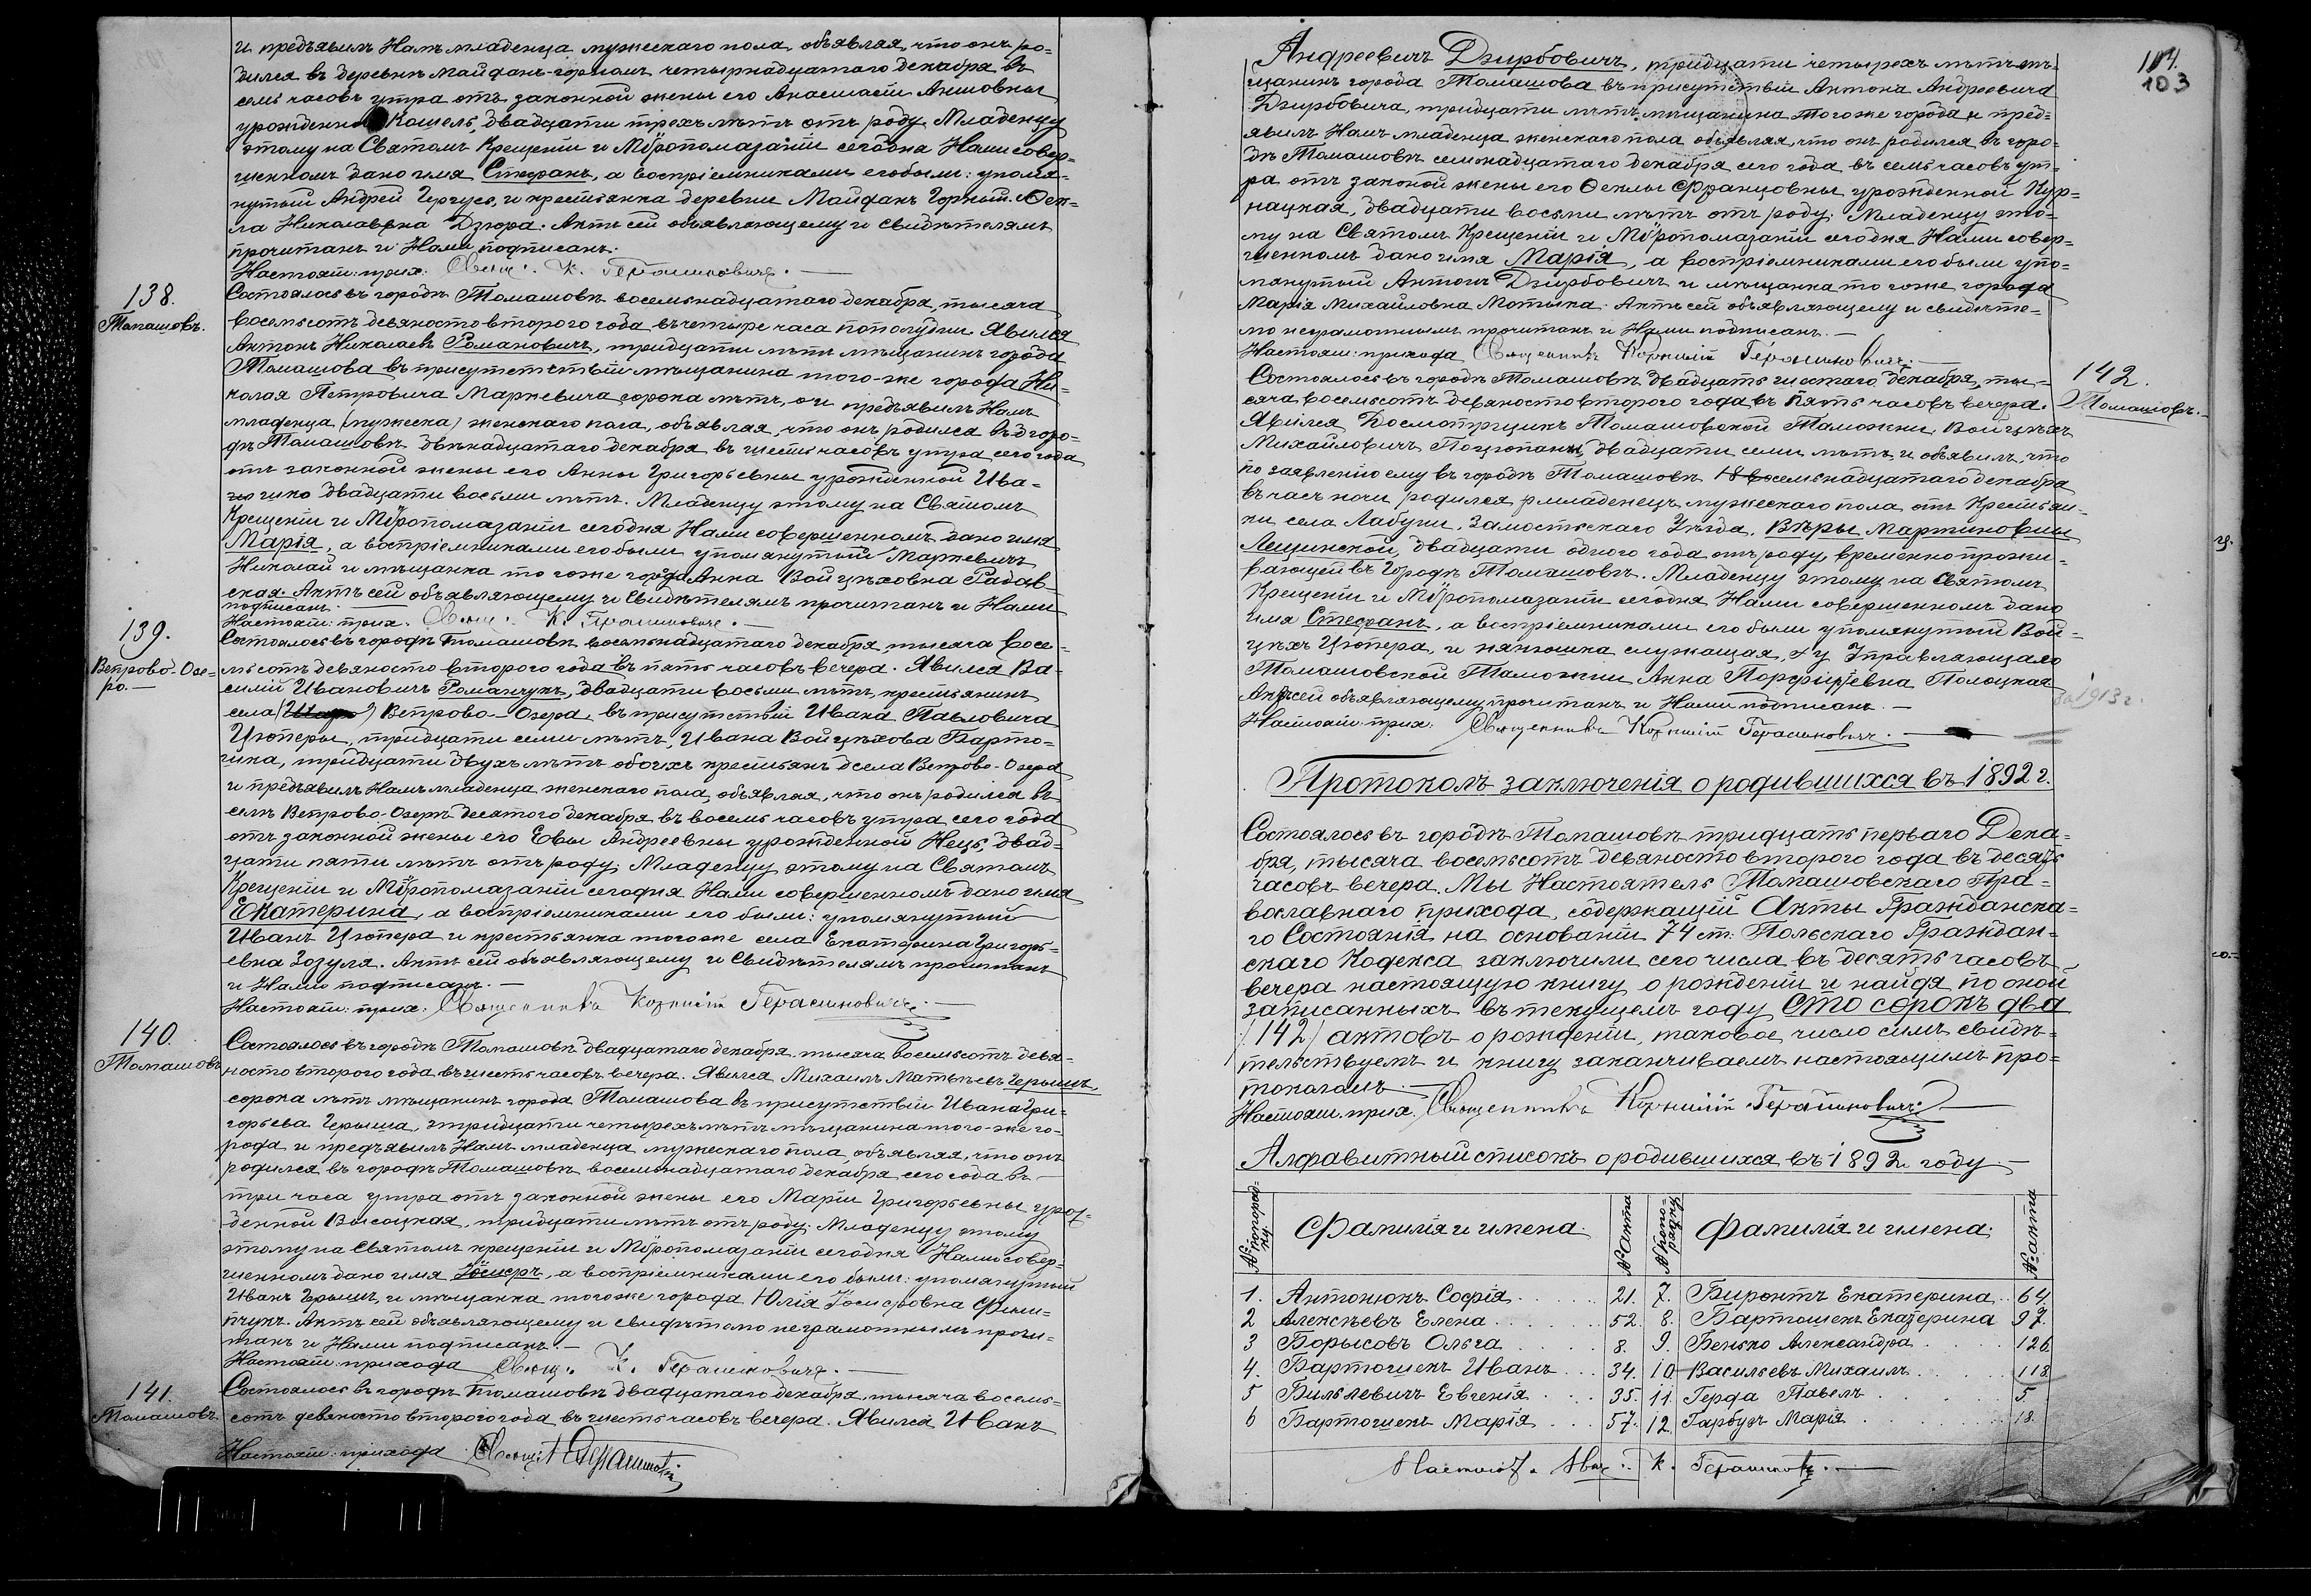 и предъявилъ Намъ младенца мужескаго пола, объявляя, что онъ ро=
дился въ деревнѣ Майданъ-горномъ четырнадцатаго декабря въ
семь часовъ утра отъ законной жены его Анастасіи
урожденной Кошель, двадцати трехъ лѣтъ отъ роду. Младенцу
этому на Святомъ Крещеніи и Мѵропомазаніи сегодня Нами совер=
шенномъ дано имя Стефанъ, а воспріемниками его были: упомя=
нутый Андрей и крестьянка деревни Майданъ Горный Фек=
ла Николаевна Дзюра. Актъ сей объявляющему и свидѣтелямъ
прочитанъ и Нами подписанъ.
Настоят: прих: Свящ: К. Герасимовичъ.
138.
Томашовъ.
Состоялось въ городѣ Томашовѣ восемьнадцатаго декабря, тысяча
восемьсотъ девяносто второго года въ четыре часа пополудни. Явился
Антонъ Николаевъ Романовичъ, тридцати лѣтъ мѣщанинъ города
Томашова въ присутствіи мѣщанина того-же города Ни=
колая Петровича Маркевича сорока лѣтъ, и предъявилъ Намъ
младенца (мужеска) женскаго пола, объявляя, что онъ родился въ горо=
дѣ Томашовѣ двѣнадцатаго декабря въ шесть часовъ утра сего года
отъ законной жены его Анны Григорьевны урожденной Ива=
двадцати восьми лѣтъ. Младенцу этому на Святомъ
Крещеніи и Мѵропомазаніи сегодня Нами совершенномъ дано имя
Марія, а воспріемниками его были упомянутый Маркевичъ
Николай и мѣщанка того же города Анна Войцѣховна Радов=
ская. Актъ сей объявляющему и свидѣтелямъ прочитанъ и Нами
подписанъ.
Настоят: прих. Свящ: К. Герасимовичъ.
139.
Ветрово-Озе=
ро.
Состоялось въ городѣ Томашовѣ, восемьнадцатаго декабря, тысяча восе=
мьсотъ девяносто второго года въ пять часовъ вечера. Явился Ва=
силій Ивановичъ Романчукъ, двадцати восьми лѣтъ, крестьянинъ
села Ветрово-Озера, въ присутствіи Ивана Павловича
Цюперы, тридцати семи лѣтъ, Ивана Войцѣхова Барто=
шка, тридцати двухъ лѣтъ обоихъ крестьянъ села Ветрово-Озера
и предъявилъ Намъ младенца женскаго пола, объявляя, что онъ родился въ
селѣ Ветрово-Озерѣ десятого декабря въ восемь часовъ утра сего года
отъ законной жены его Евы Андреевны урожденной Нецъ, двад=
цати пяти лѣтъ отъ роду. Младенцу этому на Святомъ
Крещеніи и Мѵропомазаніи сегодня Нами совершенномъ дано имя
Екатерина, а воспріемниками его были: упомянутый
Иванъ Цюпера и крестьянка того же села Екатерина Григорь=
евна Зозуля. Актъ сей объявляющему и свидѣтелямъ прочитанъ
и Нами подписанъ.
Настоят: прих: Священникъ Корнилій Герасимовичъ.
140.
Томашовъ
Состоялось въ городѣ Томашовѣ двадцатаго декабря тысяча восемьсотъ девя=
носто второго года въ шесть часовъ вечера. Явился Михаилъ Матвѣевъ Герышъ,
сорока лѣтъ мѣщанинъ города Томашова въ присутствіи Ивана Гри=
горьева Герыша, тридцати четырехъ лѣтъ мѣщанина того-же го=
рода и предъявилъ Намъ младенца мужескаго пола, объявляя, что онъ
родился въ городѣ Томашовѣ восемьнадцатаго декабря сего года въ
три часа утра отъ законной жены его Маріи Григорьевны урож=
денной Высоцкая, тридцати лѣтъ отъ роду. Младенцу этому
этому на Святомъ крещеніи и Мѵропомазаніи сегодня Нами совер=
шенномъ дано имя Іосифъ, а воспріемниками его были: упомянутый
Иванъ Герышъ и мѣщанка того же города Юлія Іосифовна
Актъ сей объявляющему и свидѣтелю неграмотнымъ прочи=
танъ и Нами подписанъ.
Настоят: прихода Свящ: К. Герасимовичъ.
141.
Томашовъ.
Состоялось въ городѣ Томашовѣ двадцатаго декабря, тысяча восемь=
сотъ девяносто второго года въ шесть часовъ вечера. Явился Иванъ
Настоят: прихода
104.
103
Андреевичъ Дзирбовичъ, тридцати четырехъ лѣтъ мѣ=
щанинъ города Томашова въ присутствіи Антона Андреевича
Дзирбовича, тридцати лѣтъ мѣщанина того же города и пред=
явилъ Намъ младенца женскаго пола объявляя, что онъ родился въ горо=
дѣ Томашовѣ семьнадцатаго декабря сего года въ семь часовъ ут=
ра отъ законой жены его Феклы Францовны урожденной Кур=
нацкая, двадцати восьми лѣтъ отъ роду. Младенцу это=
му на Святомъ Крещеніи и Мѵропомазаніи сегодня Нами совер=
шенномъ дано имя Марія, а воспріемниками его были упо=
мянутый Антонъ Дзирбовичъ и мѣщанка того же города
Марія Михайловна Мотыка. Актъ сей объявляющему и свидѣте=
лю неграмотнымъ прочитанъ и Нами подписанъ.
Настоят: прихода Священникъ Корнилій Герасимовичъ.
142.
Томашовъ.
Состоялось въ городѣ Томашовѣ двадцать шестаго декабря, ты=
сяча восемьсотъ девяносто второго года въ пять часовъ вечера.
Явился Досмотрщикъ Томашовской Таможни, Войцѣхъ
Михайловичъ двадцати семи лѣтъ и объявилъ, что
по заявленію ему въ городѣ Томашовѣ восемьнадцатаго декабря
въ часъ ночи родился младенецъ мужескаго пола отъ Крестьян=
ки села Лабуни, Замостьскаго Уѣзда, Вѣры Мартиновны
Лещинской, двадцати одного года отъ роду, временно прожи=
вающей въ Городѣ Томашовѣ. Младенцу этому на Святомъ
Крещеніи и Мѵропомазаніи сегодня Нами совершенномъ дано
имя Стефанъ, а воспріемниками его были упомянутый Вой=
цѣхъ Цюпера, и нянюшка служащая, у Управляющаго
Томашовской Таможни Анна Порфирьевна Полоцкая
Актъ сей объявляющему прочитанъ и Нами подписанъ.
За 1913 г.
Настоят: прих: Священникъ Корнилій Герасимовичъ.
Протоколъ заключенія о родившихся въ 1892 г.
Состоялось въ городѣ Томашовѣ тридцать перваго Дека=
бря, тысяча восемьсотъ девяносто второго года въ десять
часовъ вечера. Мы Настоятель Томашовскаго Пра=
вославнаго прихода, содержащій Акты Гражданска=
го Состоянія на основаніи 74 ст: Польскаго Граждан=
скаго Кодекса заключили сего числа въ десять часовъ
вечера настоящую книгу о рожденіи и найдя по оной
записанныхъ въ текущемъ году сто сорокъ два
/142/ актовъ о рожденіи, таковое число симъ свидѣ=
тельствуемъ и книгу заканчиваемъ настоящимъ про=
токоломъ.
Настоят. прих. Священникъ Корнилій Герасимовичъ
Алфавитный списокъ о родившихся въ 1892 году
№ по поряд=ку Фамилія и имена. № Акта № по по=рядку Фамилія и имена. № акта
1. Антонюкъ Софія 21. 7. Биронтъ Екатерина 64
2 Алексѣевъ Елена 52. 8. Бартошекъ Екатерина 97.
3 Борысовъ Ольга 8. 9. Бенько Александра 126
4. Бартошекъ Иванъ 34. 10 Васильевъ Михаилъ 118
5 Билълевичъ Евгенія 35. 11. Герда Павелъ 5
6 Бартошекъ Марія 57. 12. Гарбузъ Марія 18.
Настоят. Свящ: К. Герасимовичъ.